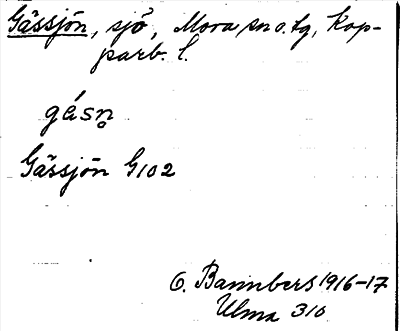 Gässjön, sjö, Mora sn o. tg, Kop-
parb. l.
gásn̥
Gässjön G102
O. Bannbers 1916-17
Ulma 310